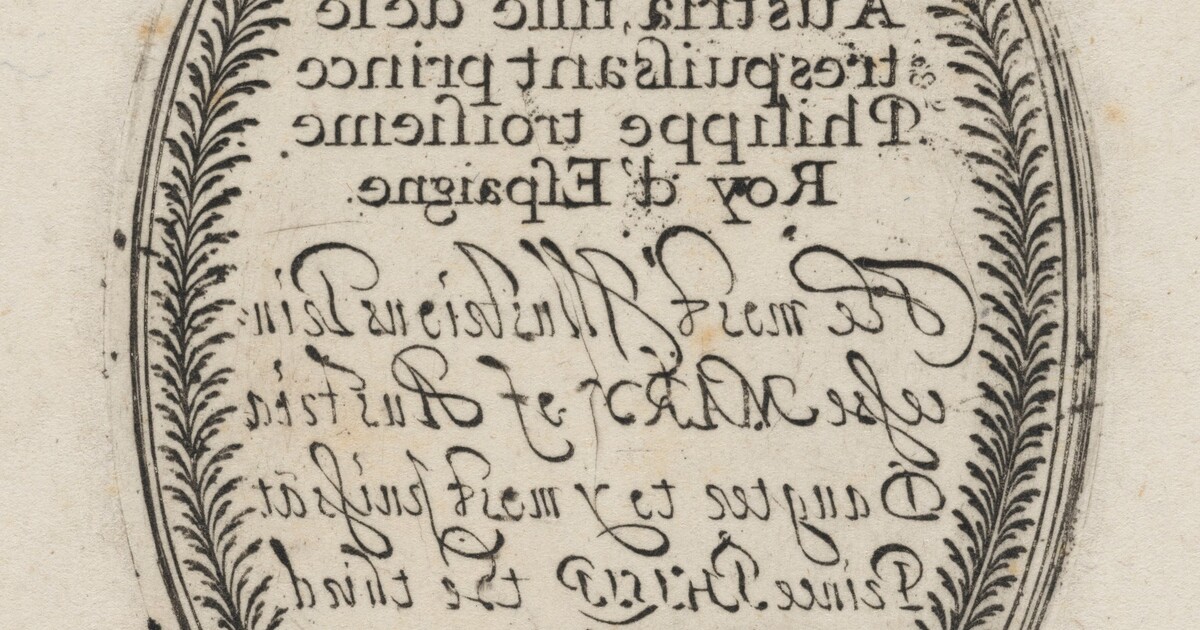 Austria, fille de le
trespuiſsant prince
Philippe troiſieme
Roy d'Eſpaigne.
The most Illustrious Prin-
ceſse MARY of Austria
Daugter to y most puiſsāt
Prince PHILIP the third